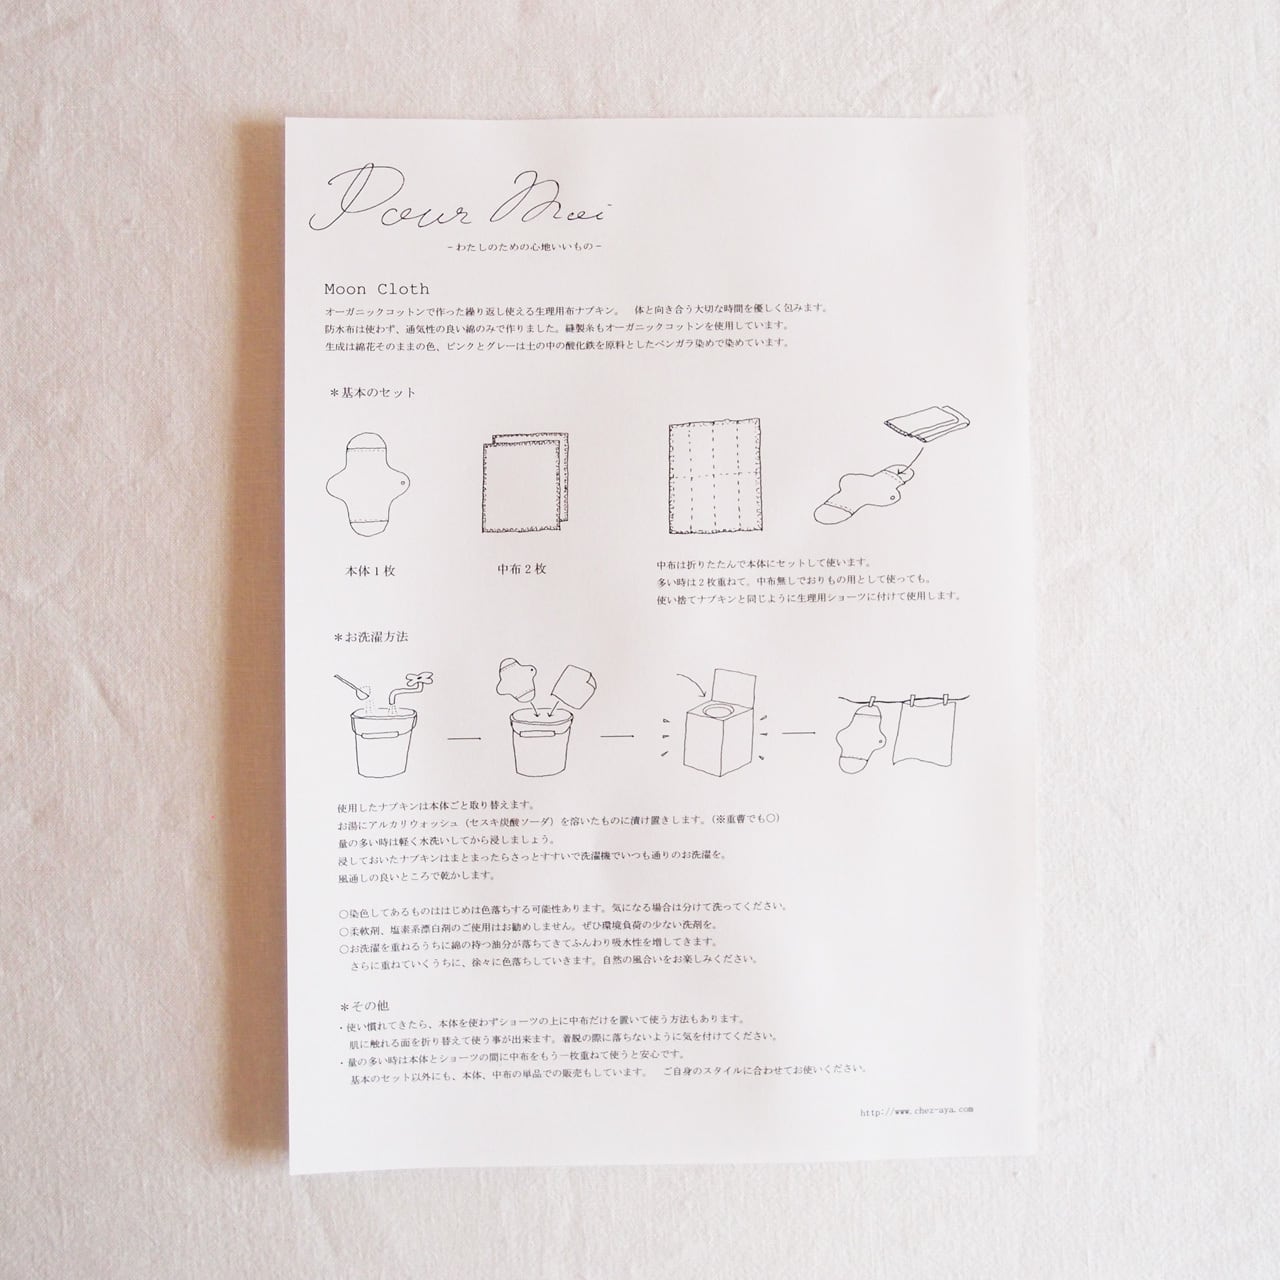 Pour Moi
－わたしのための心地いいもの－
Moon Cloth
オーガニックコットンで作った繰り返し使える生理用布ナプキン。　体と向き合う大切な時間を優しく包みます。
防水布は使わず、通気性の良い綿のみで作りました。縫製糸もオーガニックコットンを使用しています。
生成は綿花そのままの色、ピンクとグレーは土の中の酸化鉄を原料としたベンガラ染めで染めています。
＊基本のセット
本体１枚
中布２枚
中布は折りたたんで本体にセットして使います。
多い時は２枚重ねて。中布無しでおりもの用として使っても。
使い捨てナプキンと同じように生理用ショーツに付けて使用します。
＊お洗濯方法
使用したナプキンは本体ごと取り替えます。
お湯にアルカリウォッシュ（セスキ炭酸ソーダ）を溶いたものに漬け置きします。（※重曹でも○）
量の多い時は軽く水洗いしてから浸しましょう。
浸しておいたナプキンはまとまったらさっとすすいで洗濯機でいつも通りのお洗濯を。
風通しの良いところで乾かします。
○染色してあるものははじめは色落ちする可能性あります。気になる場合は分けて洗ってください。
○柔軟剤、塩素系漂白剤のご使用はお勧めしません。ぜひ環境負荷の少ない洗剤を。
○お洗濯を重ねるうちに綿の持つ油分が落ちてきてふんわり吸水性を増してきます。
さらに重ねていくうちに、徐々に色落ちしていきます。自然の風合いをお楽しみください。
＊その他
・使い慣れてきたら、本体を使わずショーツの上に中布だけを置いて使う方法もあります。
肌に触れる面を折り替えて使う事が出来ます。着脱の際に落ちないように気を付けてください。
・量の多い時は本体とショーツの間に中布をもう一枚重ねて使うと安心です。
基本のセット以外にも、本体、中布の単品での販売もしています。　ご自身のスタイルに合わせてお使いください。
http://www.chez-aya.com